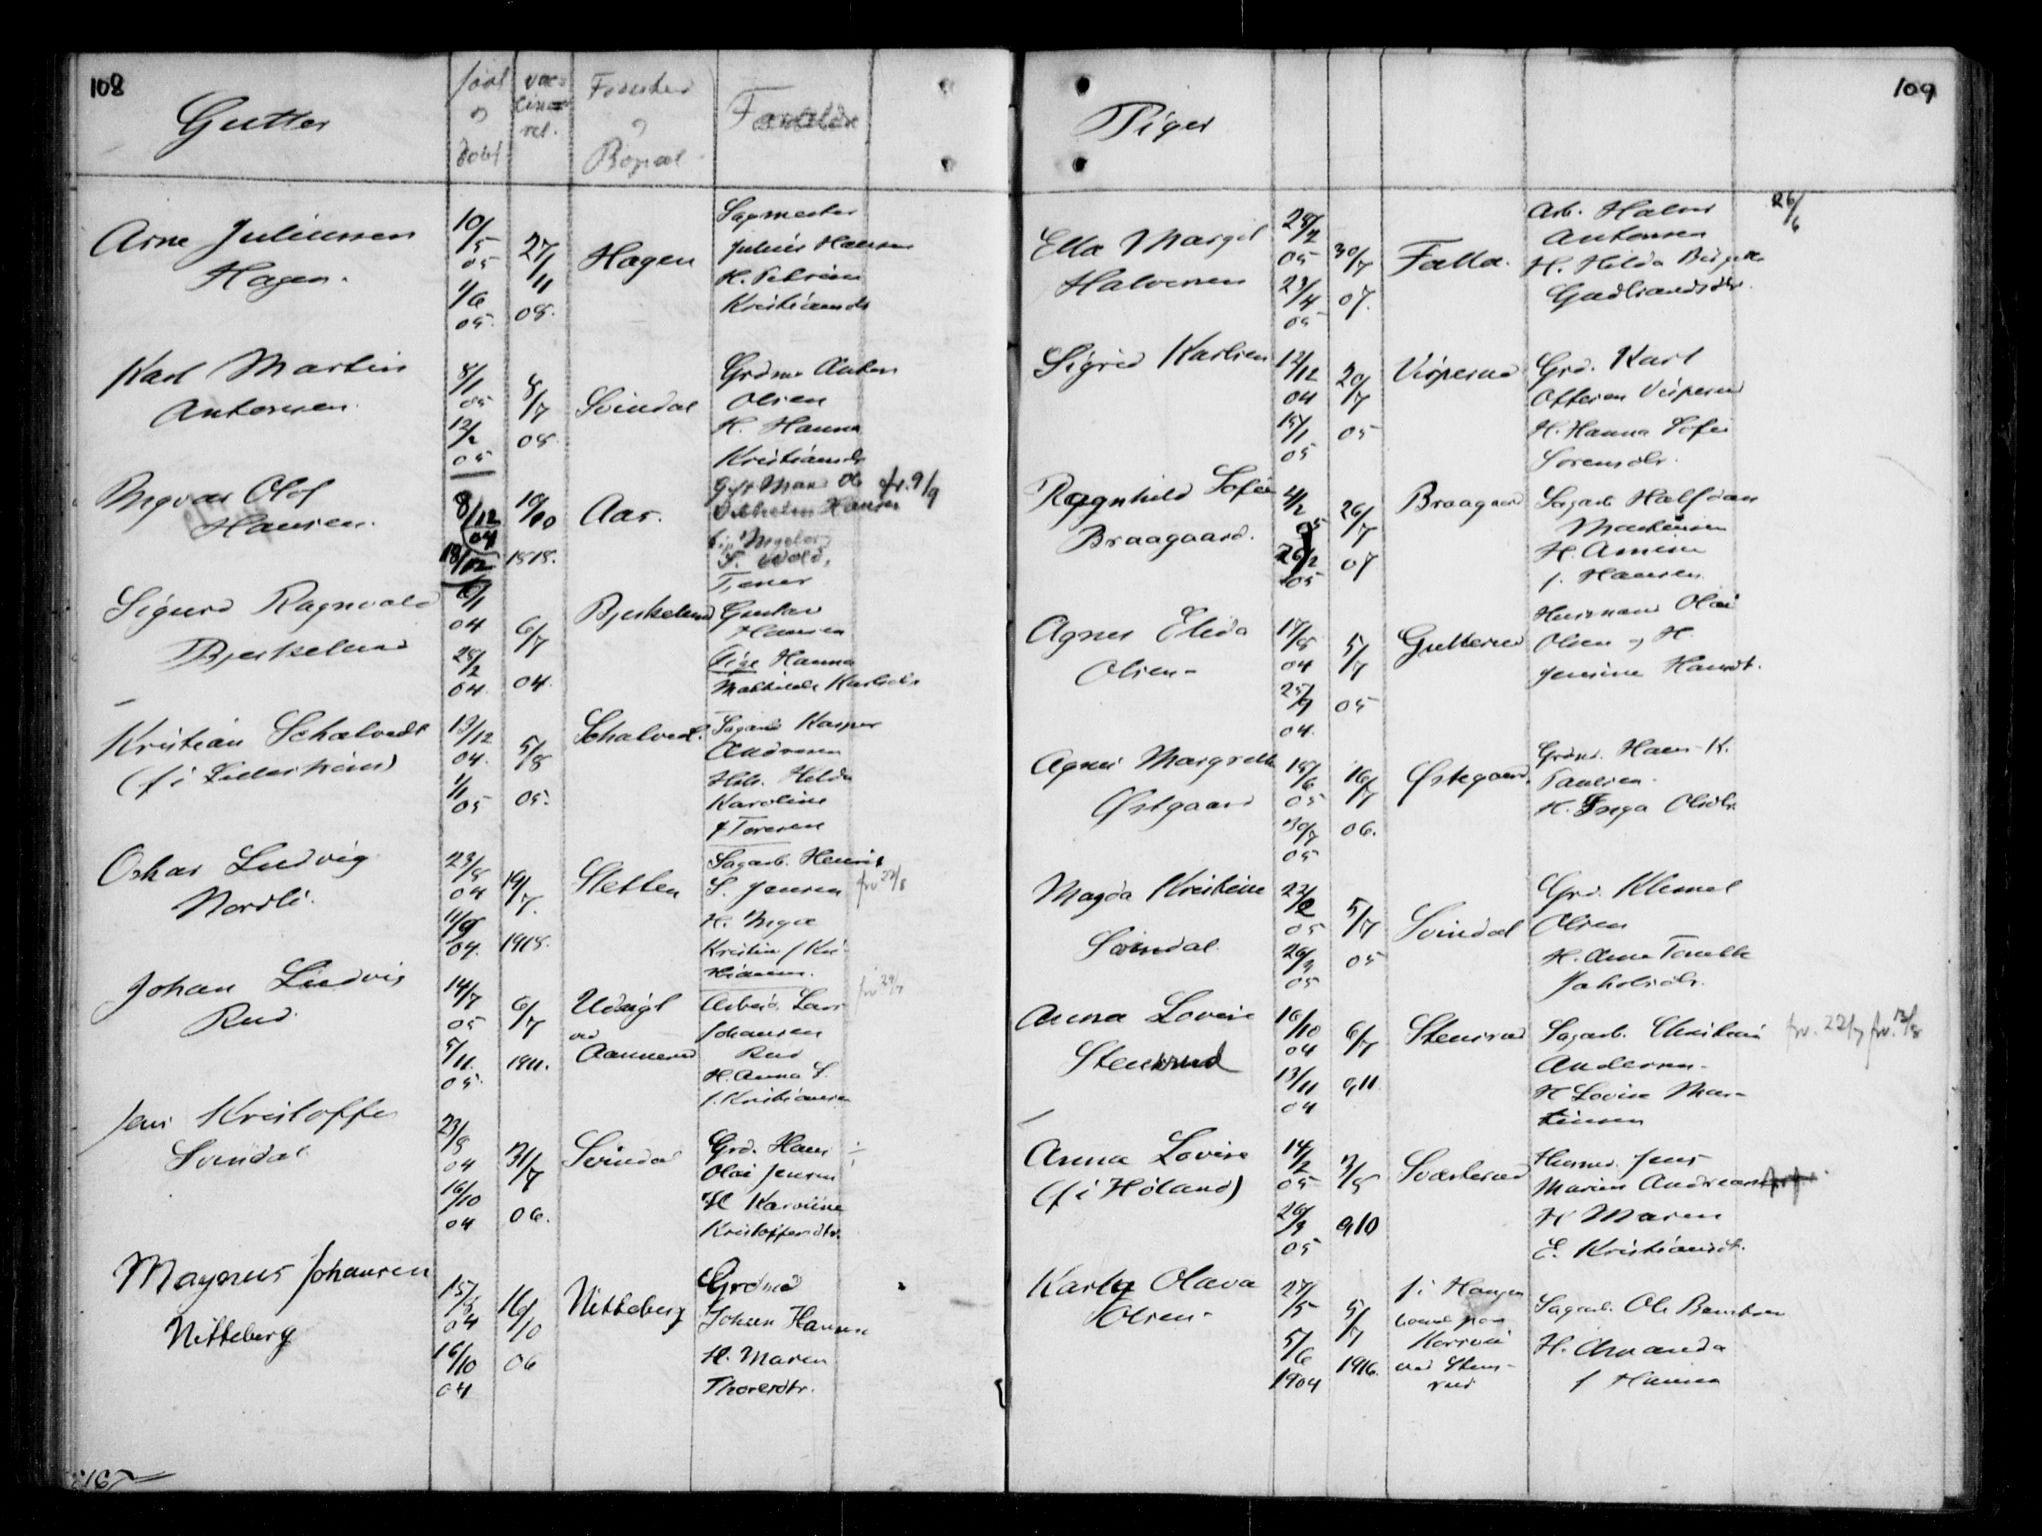 108
Gutter
født
o
døbt
vac-
cine-
ret.
Fødested
o
Bopæl
Forældre
Arne Juliussen
Hagen.
10/5
05
1/6
05.
27/11
08.
Hagen
Sagmester
Julius Hansen
H. Petrine
Kristiansdr
Karl Martin
Antonsen.
8/1
05
12/2
05
8/7
08.
Svindal
Grdmd Anton
Olsen
H. Hanna
Kristiansdr
Ingvar Olof
Hansen.
8/12
04
18/12
19/10
1918.
Aas.
Gift Mand Ole fr. 9/9
Vilhelm Hansen
Ingeborg
S. Wold,
Sigurd Ragnvald
Bjerkelund
6/1
04
28/2
04.
6/7
04.
Bjerkelund
Tjener
Gustav
Hansen
Pige Hanna
Mathilde Karlsdr
Kristian Schalvedt
(f i Lillestrøm)
13/12
04.
1/1
05
5/8
05.
Schalvedt.
Sagarb Kasper
Andresen
Hilda
Karoline
f Toresen
Oskar Ludvig
Nordli.
23/8
04
11/9
04.
19/7.
1918.
Sletten
Sagarb. Henrik
S. Jensen
H. Inga
Kristine f Kri-
stiansen.
Johan Ludvig
Rud.
14/7
05
5/11.
05.
6/7
1911.
Udsigt
ved
Aannerud
Arbeid. Lars
Johansen
Rud
H. Anna S.
f. Kristiansen
Jens Kristoffer
Svindal
23/8
04
16/10
04
31/7
06.
Svindal
Grd. Hans
Olai Jensen
H Karoline
Kristoffersdtr.
Magnus Johansen
Nitteberg
15/8
04
16/10
04
16/10
06
Nitteberg
Grdmd
Johan Hansen
H. Maren
Thoresdtr.
167
109
Piger
Ella Margit
Halvorsen
28/2
05
23/4
05
30/7
07.
Falla.
Arb. Halvor
Antonsen
H. Hilda Birgitte
Gudbrandsdtr.
26/6
Sigrid Karlsen
12/12
04
15/1
05
20/7
05
Visperud
Grd. Karl
Ottersen Visperud
H. Hanna Sofie
Sørensdr.
Ragnhild Sofie
Braagaard.
4/2
05
26/2
05
26/7
07
Braagaard
Sagarb Halfdan
Martinsen
H. Amine
f. Hansen.
Agnes Elida
Olsen-
17/8
04
25/9
04.
5/7
05
Gutterud
Husmand Olai
Olsen og H.
Jensine Hansdt.
Agnes Margrethe
Østgaard
18/6
05
30/7
05
16/7
06.
Østegaard.
Grdmd. Hans K.
Paulsen.
H. Inga Olsdtr
Magda Kristine
Svindal
22/2
05
26/3
05
5/7
05
Svindal
Grd. Klemet
Olsen
H. Anne Tonette
Jakobsdr.
Anna Lovise
Stensrud
16/10
04
13/11
04
6/7
911.
Stensrud
Sagarb. Christian
Andersen-
H Lovise Mar-
tinsen
fr. 22/7 fr. 13/8
Anna Lovise
(f i Høland)
14/2
05
26/3
05
3/5
910
Sværterud
Husmd. Jens
Marius Andreasen
H Maren
E. Kristiansdt.
Karla Olava
Olsen-
27/5
5/6
1904
5/7
1916.
f i Haugen
Korsveie
ved Stens-
rud
Sagarb. Ole Berntsen
H. Amanda
f Hansen